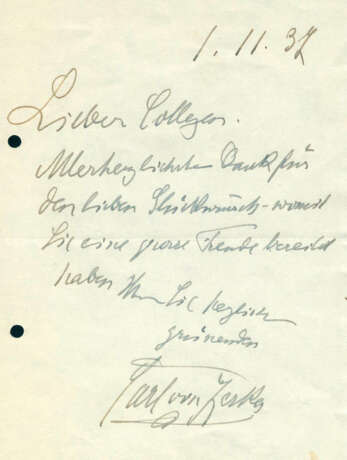 1. 11. 37
Lieber Collega.
Allerherzlichsten Dank für
den lieben Glückwunsch - womit
Sie eine grosse Freude bereitet
haben Sie herzlich
grüssender
Carl von